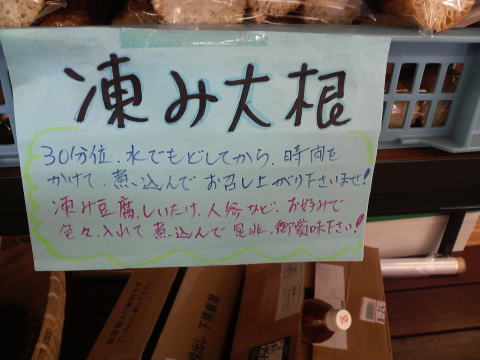 凍み大根
30分位、水でもどしてから、時間を
かけて、煮込んでお召し上がり下さいませ!
凍み豆腐、しいたけ、人参など、お好みで
色々、入れて煮込んで是非、御賞味下さい!